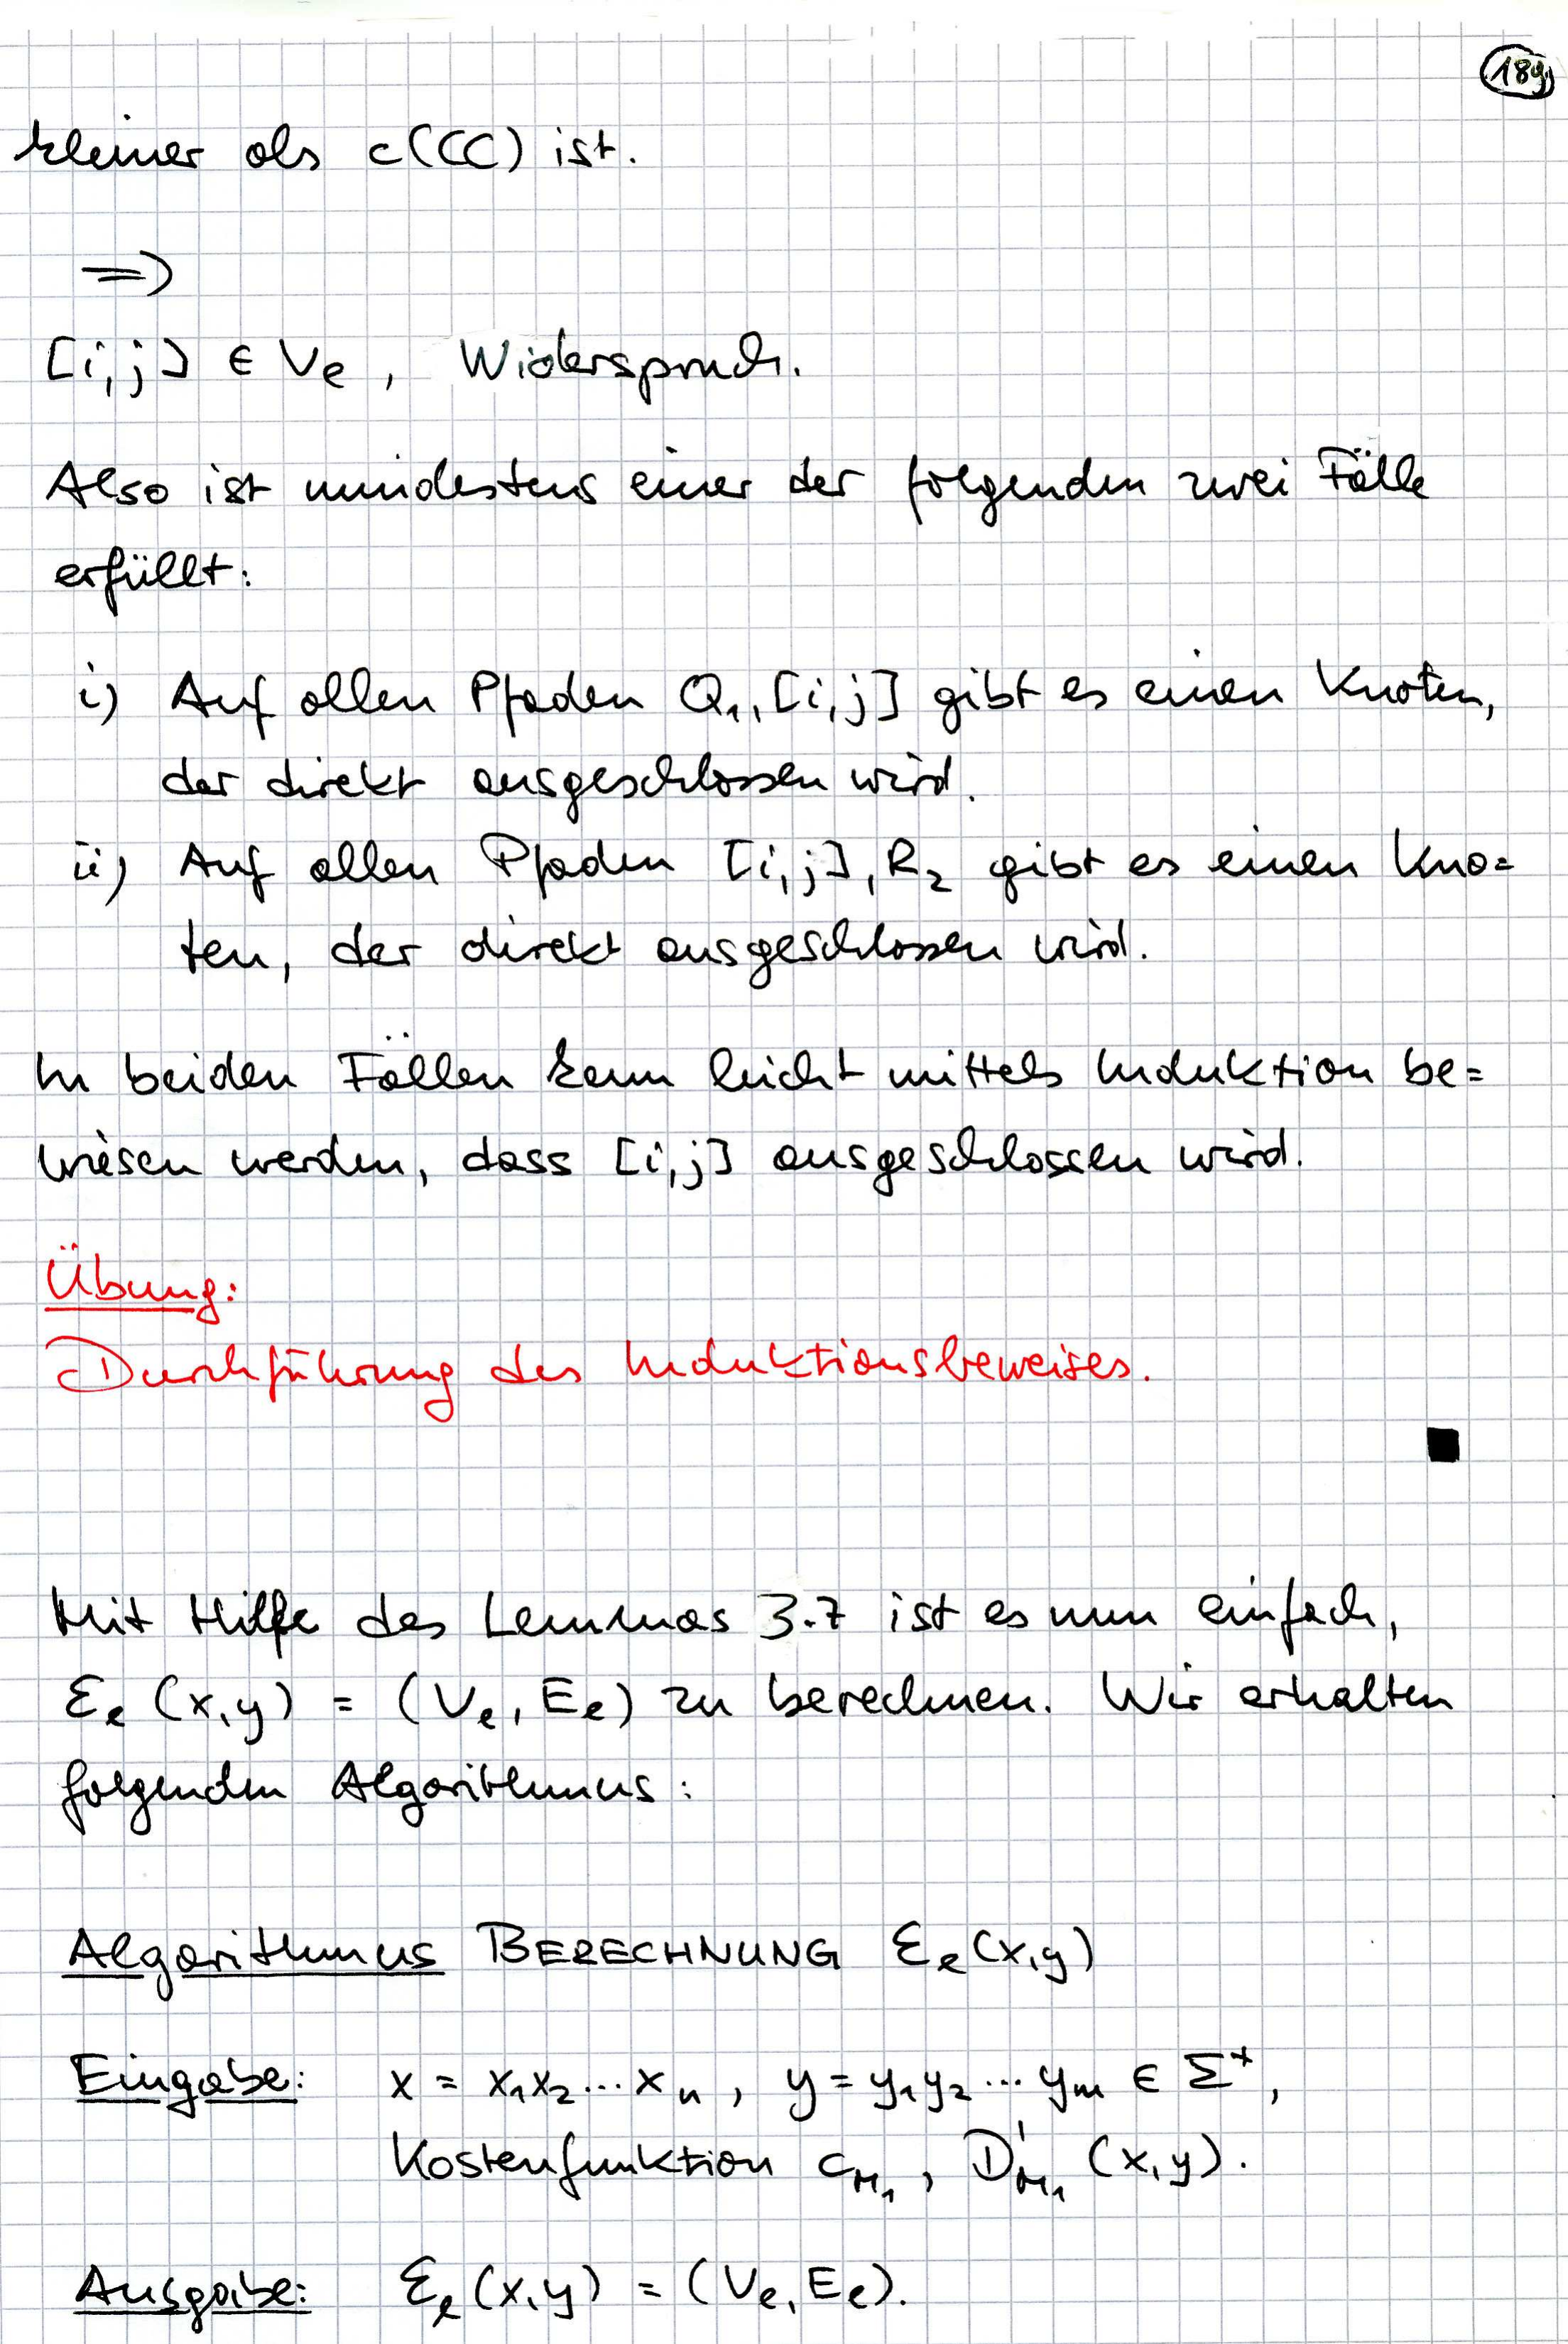 189
kleiner als c(CC) ist.
=>
[i,j] ∈ Vₑ, Widerspruch.
Also ist mindestens einer der folgenden zwei Fälle
erfüllt:
i) Auf allen Pfaden Q₁,[i,j] gibt es einen Knoten,
der direkt ausgeschlossen wird.
ii) Auf allen Pfaden [i,j],R₂ gibt es einen Kno=
ten, der direkt ausgeschlossen wird.
In beiden Fällen kann leicht mittels Induktion be=
wiesen werden, dass [i,j] ausgeschlossen wird.
Übung:
Durchführung des Induktionsbeweises.
Mit Hilfe des Lemmas 3.7 ist es nun einfach,
Ɛₑ(x,y) = (Vₑ, Eₑ) zu berechnen. Wir erhalten
folgenden Algorithmus:
Algorithmus BERECHNUNG Ɛₑ(x,y)
Eingabe: x = x₁x₂...xₙ, y = y₁y₂...yₘ ∈ Σ⁺,
Kostenfunktion c_M₁, D'_M₁(x,y).
Ausgabe: Ɛₑ(x,y) = (Vₑ, Eₑ).